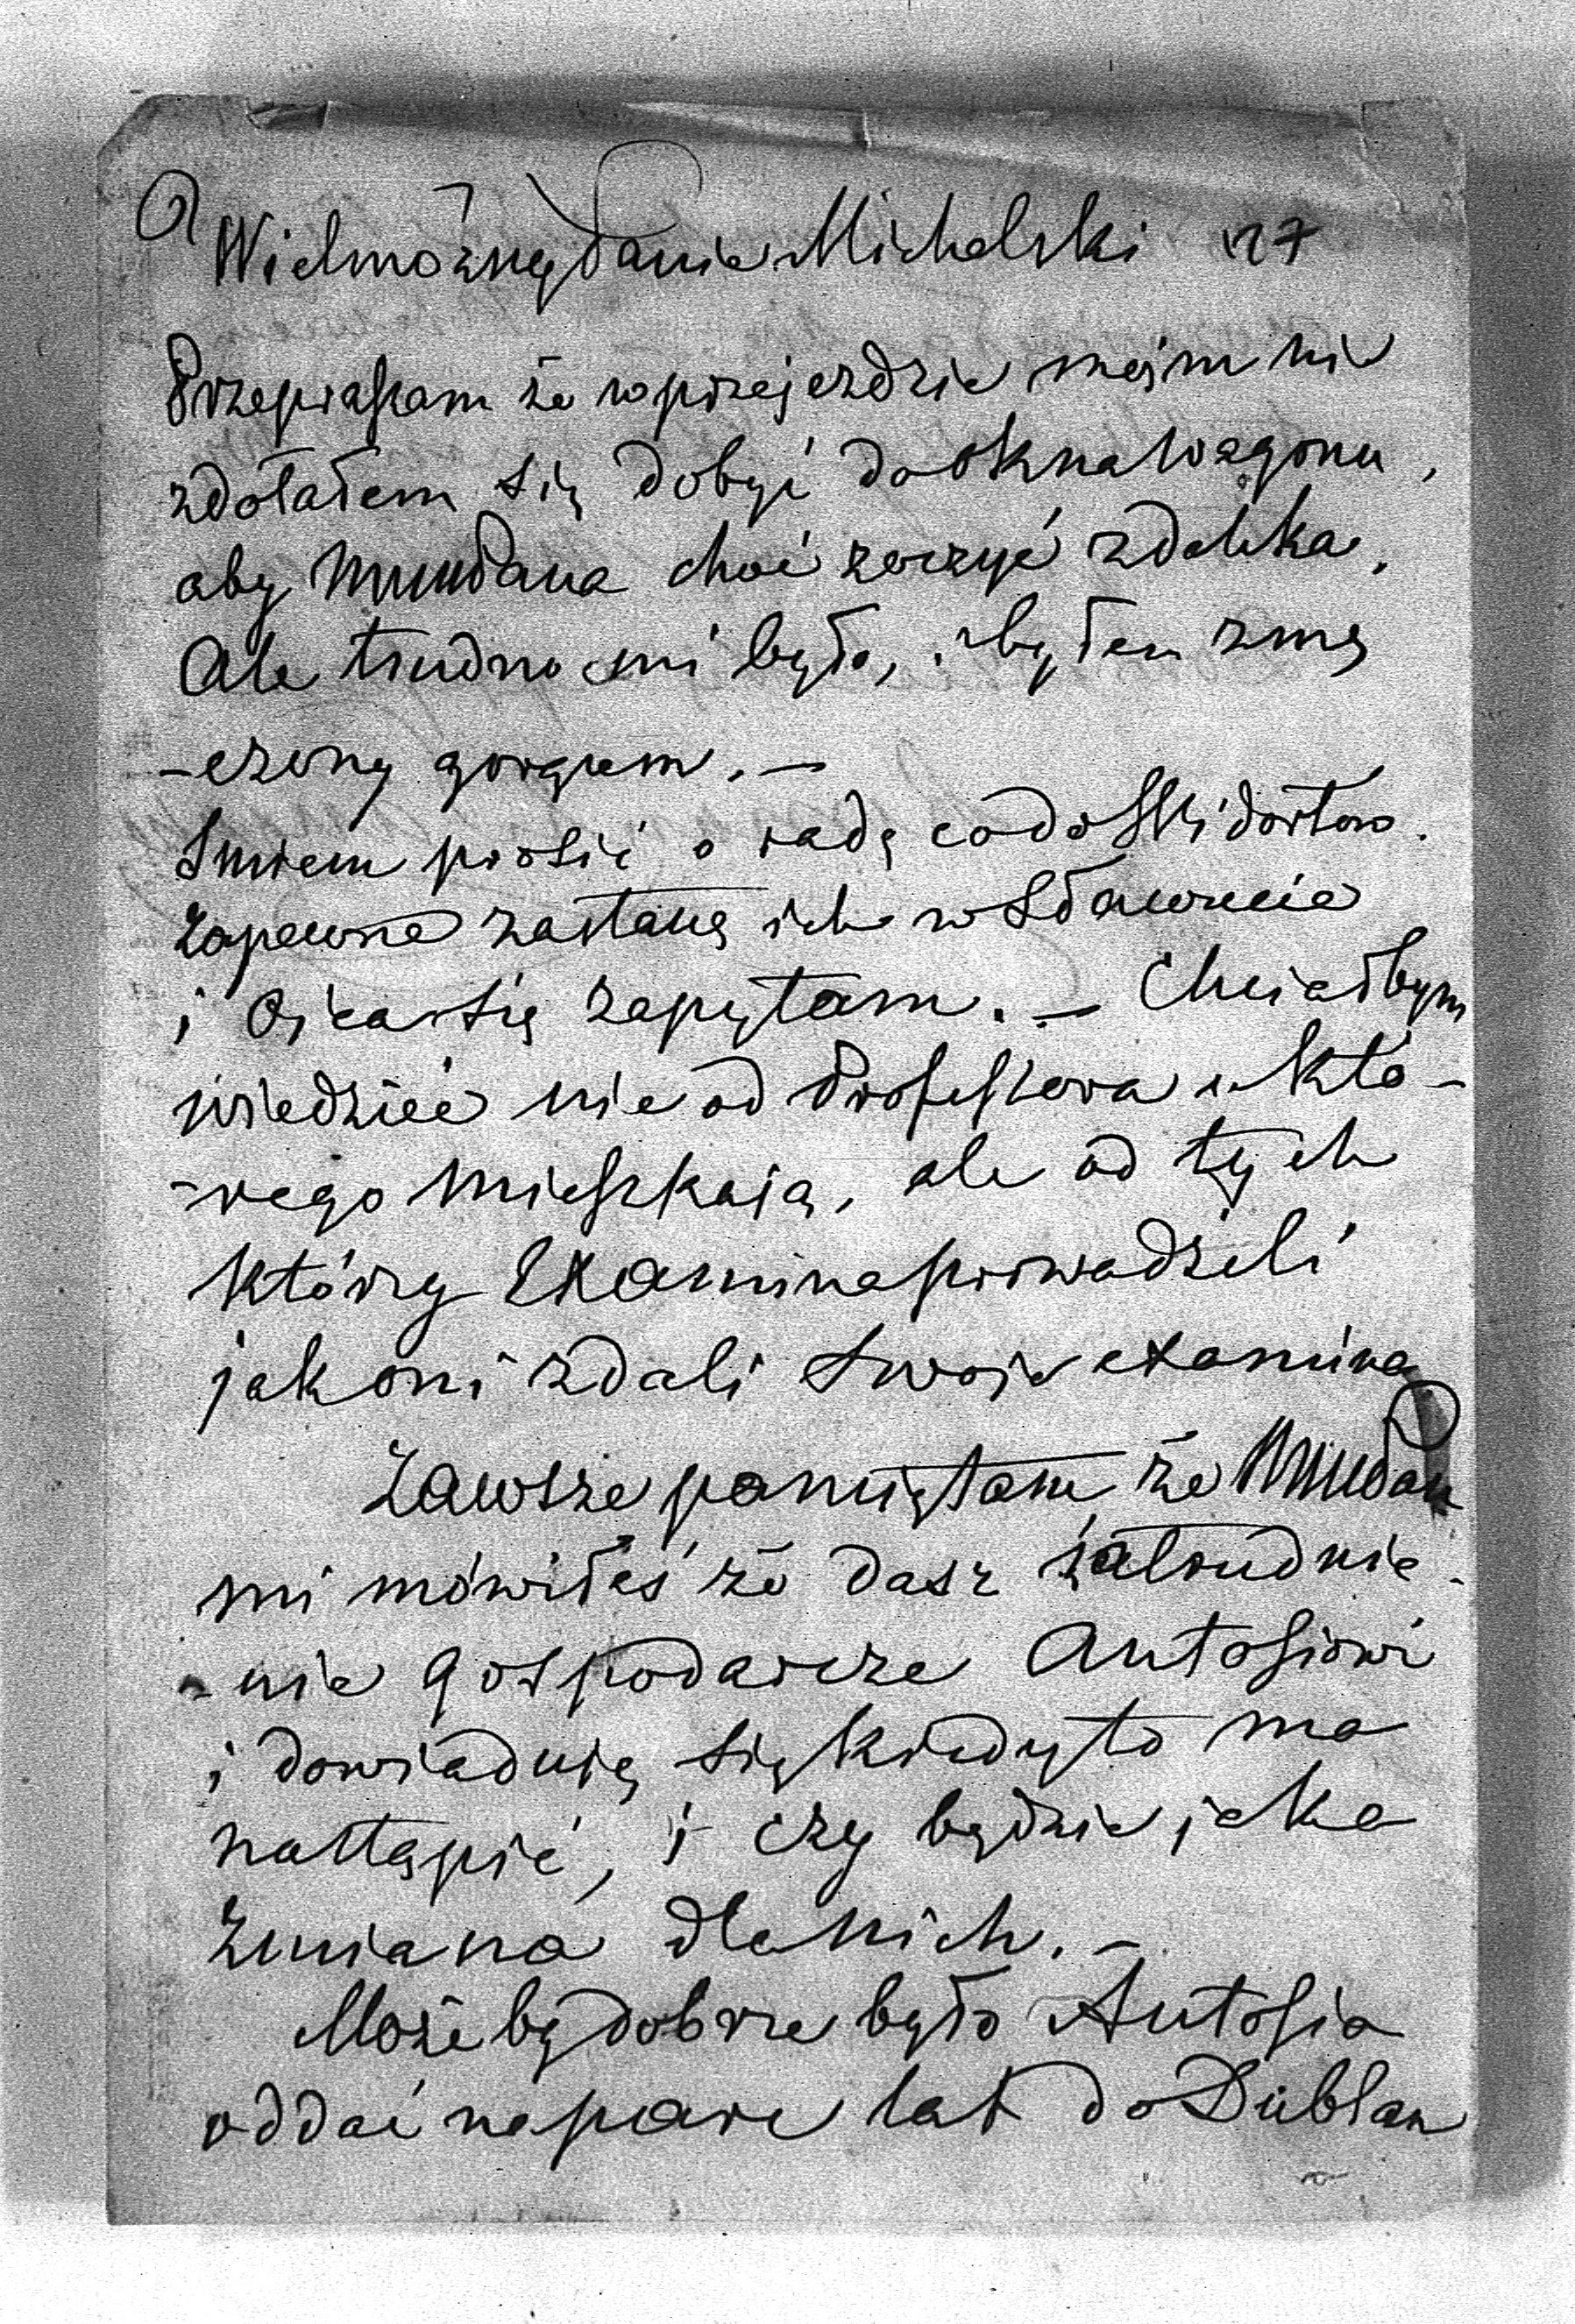 Wielmożny Panie Michalski 127
Przepraszam że w przejezdzie mojm nie
zdołałem się dobyć do okna wagonu,
aby Mundana choć zoczyć zdaleka.
Ale trudno mi było, i byłem zmę
-czony gorącem. —
Smiem prosić o radę co do
Zapewne zastanę ich w Sławucie
i Ojca się zapytam. — Chciałbym
wiedzieć nie od Professora u któ-
-rego mieszkają, ale od tych
którzy Examina prowadzili
jak oni zdali swoje examina
Zawsze pamiętam że
mi mówiłeś że dasz zatrudnie-
-nie gospodarcze Antosiowi
i dowiaduję się kiedy to ma
nastąpić, i czy będzie jaka
zmiana dla nich. —
Może by dobrze było Antosia
oddać na parę lat do Dublan